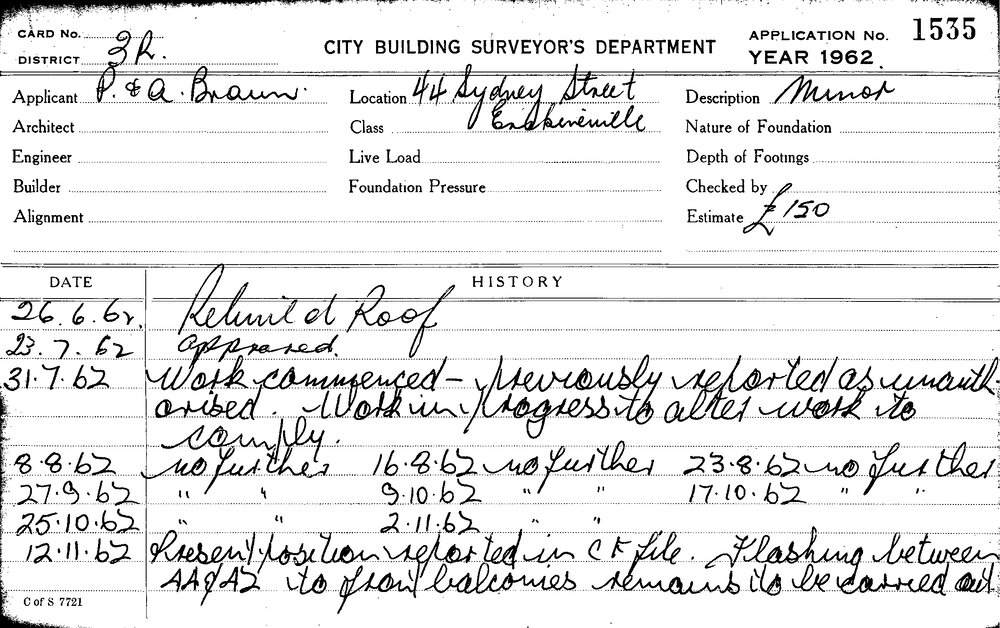 CARD No.
DISTRICT 3R.
CITY BUILDING SURVEYOR'S DEPARTMENT
APPLICATION No. 1535
YEAR 1962.
Applicant P. & A. Braun. Location 44 Sydney Street Description Minor
Architect Class Erskineville Nature of Foundation
Engineer Live Load Depth of Footings
Builder Foundation Pressure Checked by
Alignment Estimate £150
DATE HISTORY
26.6.62. Rebuild Roof
23.7.62 approved.
31.7.62 Work commenced - previously reported as unauth-
orised. Work in progress to alter work to
comply.
8.8.62 no further 16.8.62 no further 23.8.62 no further
27.9.62 " " 9.10.62 " " 17.10.62 " "
25.10.62 " " 2.11.62 " "
12.11.62 Present position reported in C F file. Flashing between
44 & 42 to front balconies remains to be carried out.
C of S 7721